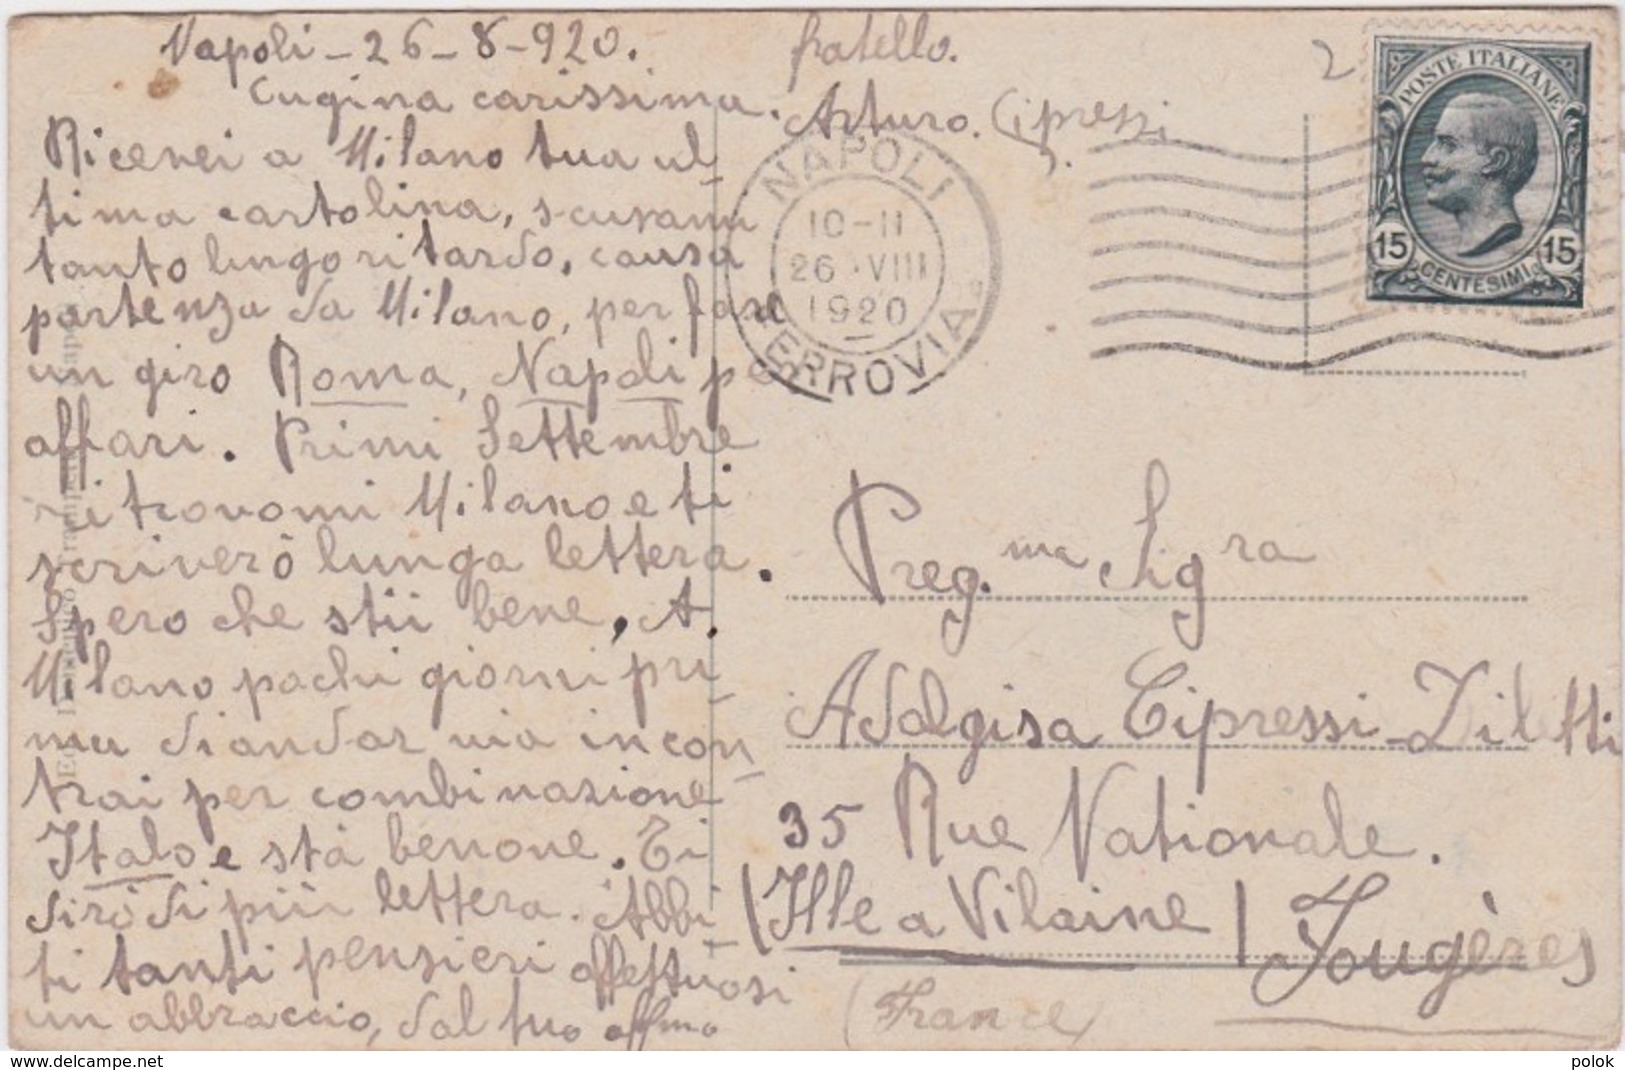 Napoli - 26 - 8 - 920.
Cugina carissima.
Ricevei a Milano tua ul-
tima cartolina, scusami
tanto lungo ritardo, causa
partenza da Milano, per fare
un giro Roma, Napoli p
affari. Primi Settembre
ritrovomi Milano e ti
scriverò lunga lettera.
Spero che stii bene, A.
Milano pochi giorni pri-
ma diandar via incon-
trai per combinazione
Italo e sta benone. Ti
dirò di più lettera. Abbi-
ti tanti pensieri affettuosi
un abbraccio, dal tuo affmo
fratello.
Arturo. Cipressi
2
POSTE ITALIANE
15 15
CENTESIMI
NAPOLI
10-11
26 · VIII
1920
FERROVIA
Preg.ma Sigra
Adalgisa Cipressi-Ziletti
35 Rue Nationale.
(Ille a Vilaine) Fougères
(France)
delcampe.net
polok